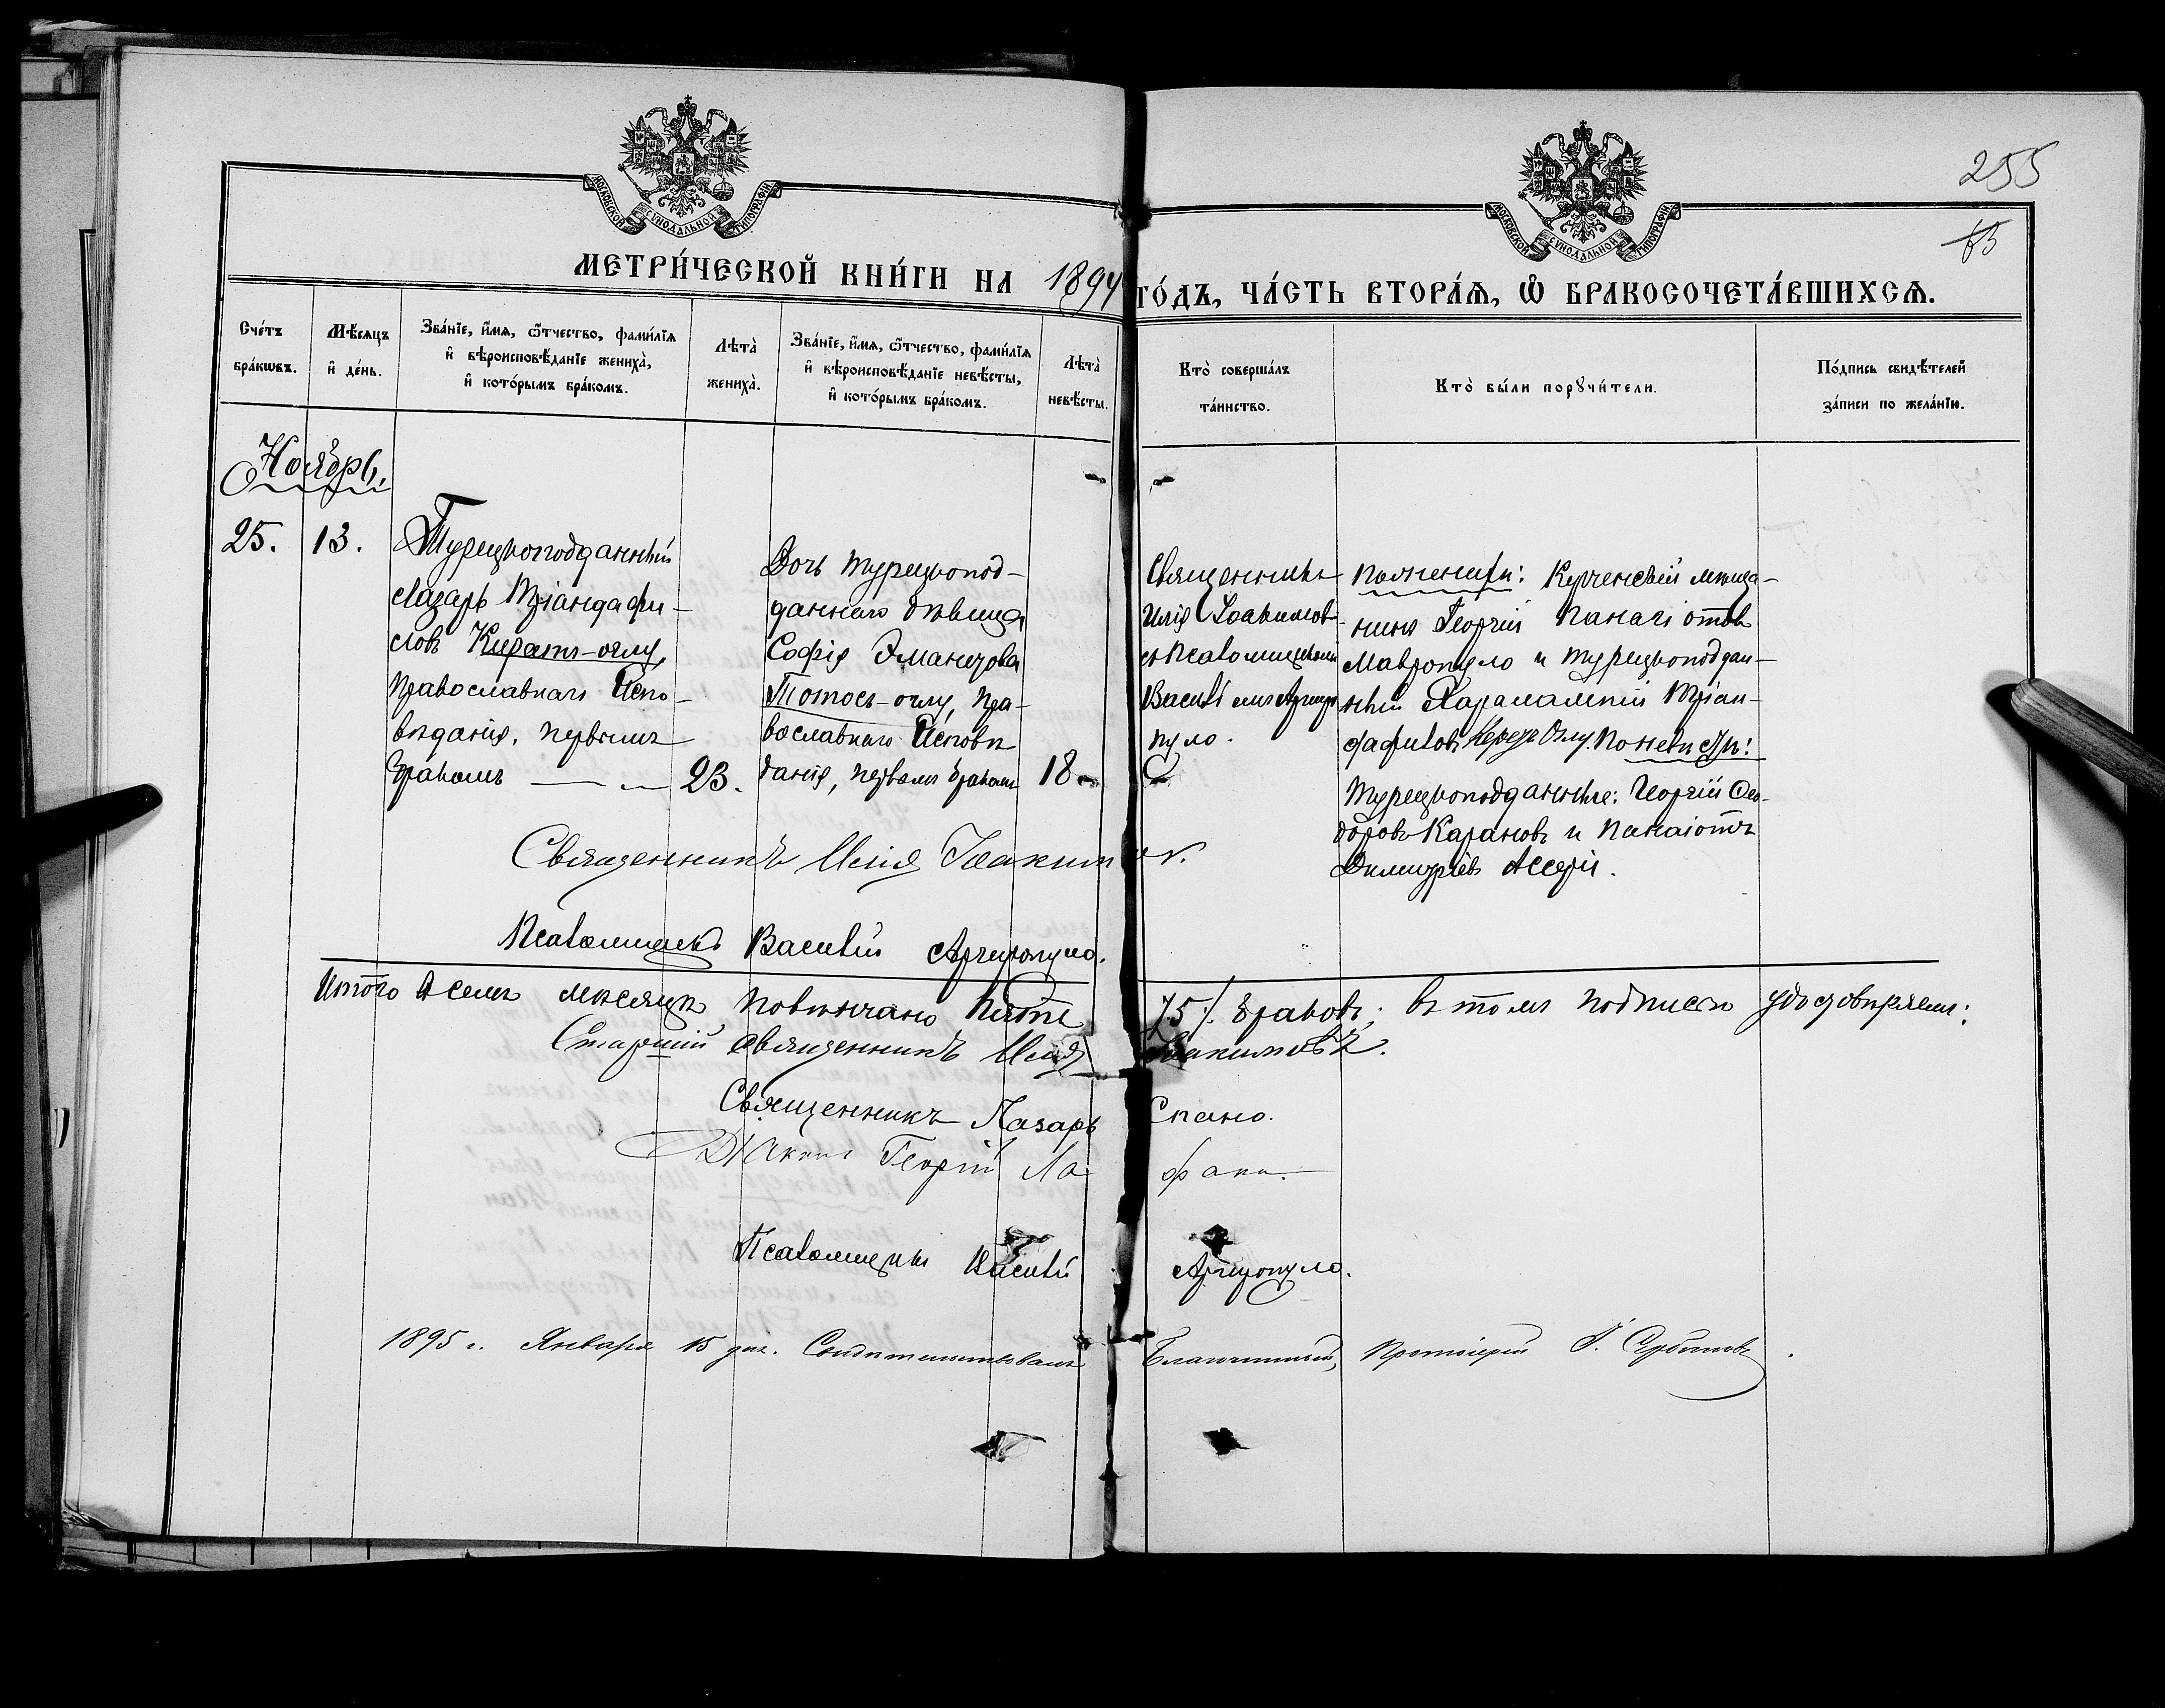 255
63
МОСКОВСКОЙ СѴНОДАЛЬНОЙ ТИПОГРАФІИ
МОСКОВСКОЙ СѴНОДАЛЬНОЙ ТИПОГРАФІИ
МЕТРИ́ЧЕСКОЙ КНИ́ГИ НА 1894 ГО́ДЪ, ЧА́СТЬ ВТОРА́Ѧ, Ѽ БРАКОСОЧЕТА́ВШИХСѦ.
Сче́тъ
бра́кѡвъ.
Мѣ́сяцъ
и҆ де́нь.
Зва́нїе, и҆́мѧ, ѻ҆́тчество, фами́лїѧ
и҆ вѣроисповѣ́данїе жениха̀,
и҆ кото́рымъ бра́комъ.
Лѣта̀
жениха̀.
Зва́нїе, и҆́мѧ, ѻ҆́тчество, фами́лїѧ
и҆ вѣроисповѣ́данїе невѣ́сты,
и҆ кото́рымъ бра́комъ.
Лѣта̀
невѣ́сты.
Кто̀ соверша́лъ
та́инство.
Кто̀ бы́ли порꙋчи́тели.
По́дпись свидѣ́телей
за́писи по жела́нїю.
Ноябрь.
25. 13.
Турецкоподданный
Лазарь Тріандафи-
ловъ Кирать-оглу,
православнаго Испо-
вѣданія, первымъ
бракомъ — 23.
Дочь турецкопод-
даннаго дѣвица
Софія
Тотось-оглу, пра-
вославнаго Исповѣ
данія, первымъ бракомъ 18
Священникъ
Илія Іоакимовъ
съ Псаломщикомъ
Василіемъ Аргиро
пуло.
По женихѣ: Керченскій мѣща-
нинъ Георгій Панагіотовъ
Мавропуло и турецкоподдан-
ный Харалампій Тріан-
дафиловъ Оглу По невѣстѣ:
Турецкоподданные: Георгій Ѳео-
доровъ Карановъ и Панаіотъ
Димитріевъ
Священникъ Илія Іоакимов.
Псаломщикъ Василій Аргиропуло.
Итого въ семъ мѣсяцѣ повѣнчано пять /5/. браковъ; въ томъ подписью удостовѣряемъ:
Старшій священникъ Илія Іоакимовъ.
Священникъ Лазарь Спано.
Діаконъ Георгій Лафаки.
Псаломщикъ Василій Аргиропуло.
1895 г. Января 15 дня. Свидѣтельствовалъ Благочинный, Протоіерей І. Сербиновъ.